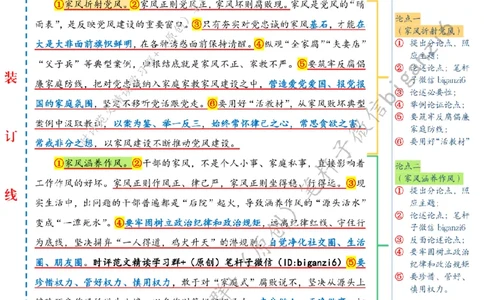 ①家风折射党风。②家风正则党风正、家风坏则腐败现。家风是党风的“晴
雨表”,是反映党风建设的重要窗口。③只有夯实对党忠诚的家风基石,才能在
大是大非面前旗帜鲜明,在各种诱惑面前保持清醒。④纵观“全家腐”“夫妻店”
“父子兵”等典型案例,冲根结底就是家风不正、家教不严。⑤要筑牢反腐倡
廉家庭防线,把对党忠诚纳入家庭家教家风建设之中,营造爱党爱国、报党报
国的家庭氛围,坚定不移听党话跟党走。⑥要用好“活教材”,从家风败坏典型
案例中汲取教训,以案为鉴、举一反三,始终常怀律己之心,常思贪欲之害,
常戒非分之想,以家风建设不断推动党风建设。
①家风涵养作风。②干部的家风,不是个人小事、家庭私事,直接影响着
工作作风的好坏。家风正则作风正、律己严,家风正则坐得稳、行得远。③现
实生活中,出问题的干部普遍都是“后院”起火,导致涵养作风的“源头活水”
变成“一潭死水”。④要牢固树立政治纪律和政治规矩,远离纪律红线、守住行
为底线,坚决摒弃“一人得道,鸡犬升天”的潜规则,自觉净化社交圈、生活
圈、朋友圈。时评范文精读学习群+(原创)笔杆子微信(ID:biganzi6)⑤要
珍惜权力、管好权力、慎用权力,敢于对“家庭式”腐败说不,坚决从源头上
装
订
线
论点一
(家风折射党风)
① 提出分论点,照
应主题;
② 论述论点;笔杆
子微信 biganzi6
③ 论述必要性;
④ 举例论证论点;
⑤ 要筑牢反腐倡廉
家庭防线;
⑥ 要用好“活教材”
论点二
(家风涵养作风)
① 提出分论点,照
应主题;
② 论述论点;笔杆
子微信 biganzi6
③ 反面论述论点;
④ 要牢固树立政治
纪律和政治规矩
⑤ 要珍惜、管好、
慎用权力,